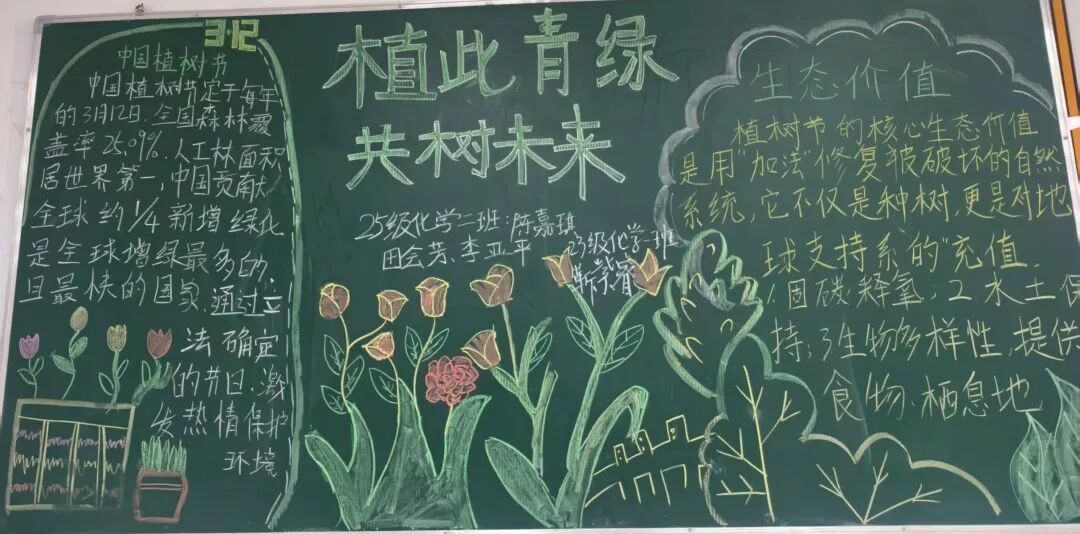 3.12
中国植树节
中国植树节定于每年
的3月12日.全国森林覆
盖率25.09%.人工林面积
居世界第一,中国贡献
全球约1/4新增绿化
是全球增绿最多的
且最快的国家.通过立
法确定
的节日.激
发热情保护
环境
植此青绿
共树未来
25级化学二班:陈嘉琪
田会芳、李亚平
23级化学一班
生态价值
植树节的核心生态价值
是用"加法"修复被破坏的自然
系统,它不仅是种树,更是对地
球支持系的"充值.
1.固碳释氧;2水土保
持;3生物多样性,提供
食物、栖息地